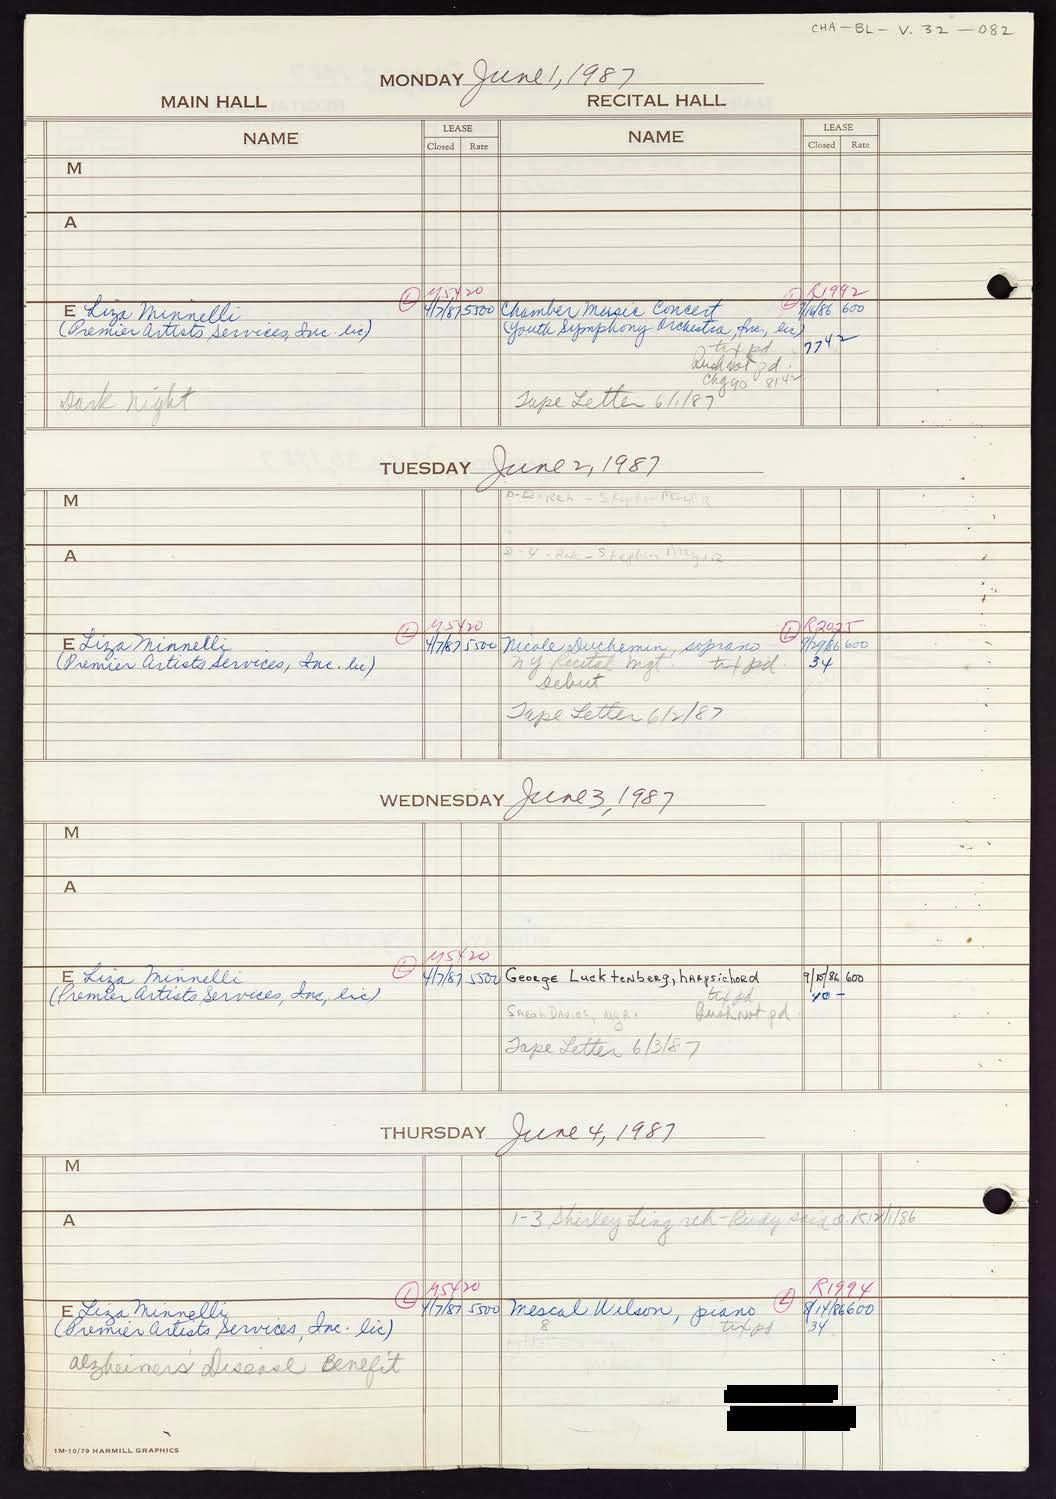 CHA-BL- V. 32 -082
MONDAY June 1, 1987
MAIN HALL RECITAL HALL
NAME LEASE NAME LEASE
Closed Rate Closed Rate
M
A
L M5420 L R1992
E Liza Minnelli 4/7/87 5500 Chamber Music Concert 600
(Premier Artists Services, Inc. lic) (Youth Symphony Orchestra, Inc., lic)
tix pd 7742
Rush not pd.
Chg 40 8142
Dark Night Tape Letter 6/1/87
TUESDAY June 2, 1987
M Reh - Stephen
A Reh - Stephen
L M5420 L R2025
E Liza Minnelli 4/7/87 5500 Nicole Duchemin, soprano 9/29/86 600
(Premier Artists Services, Inc. lic) NY Recital Mgt. tix pd. 34
debut
Tape Letter 6/2/87
WEDNESDAY June 3, 1987
M
A
L M5420
E Liza Minnelli 4/7/87 5500 George Lucktenberg, harpsichord 9/15/86 600
(Premier Artists Services, Inc, lic) tix pd 40 -
Sarah Davies, Mgr. Rush not pd.
Tape Letter 6/3/87
THURSDAY June 4, 1987
M
A 1-3 Shirley Ling reh - Rudy said O.K. 12/1/86
L M5420 L R1994
E Liza Minnelli 4/7/87 5500 Mescal Wilson, piano 8/14/86 600
(Premier Artists Services, Inc. lic) 8 tix pd 34
Alzheimers' Disease Benefit
1M-10/79 HARMILL GRAPHICS